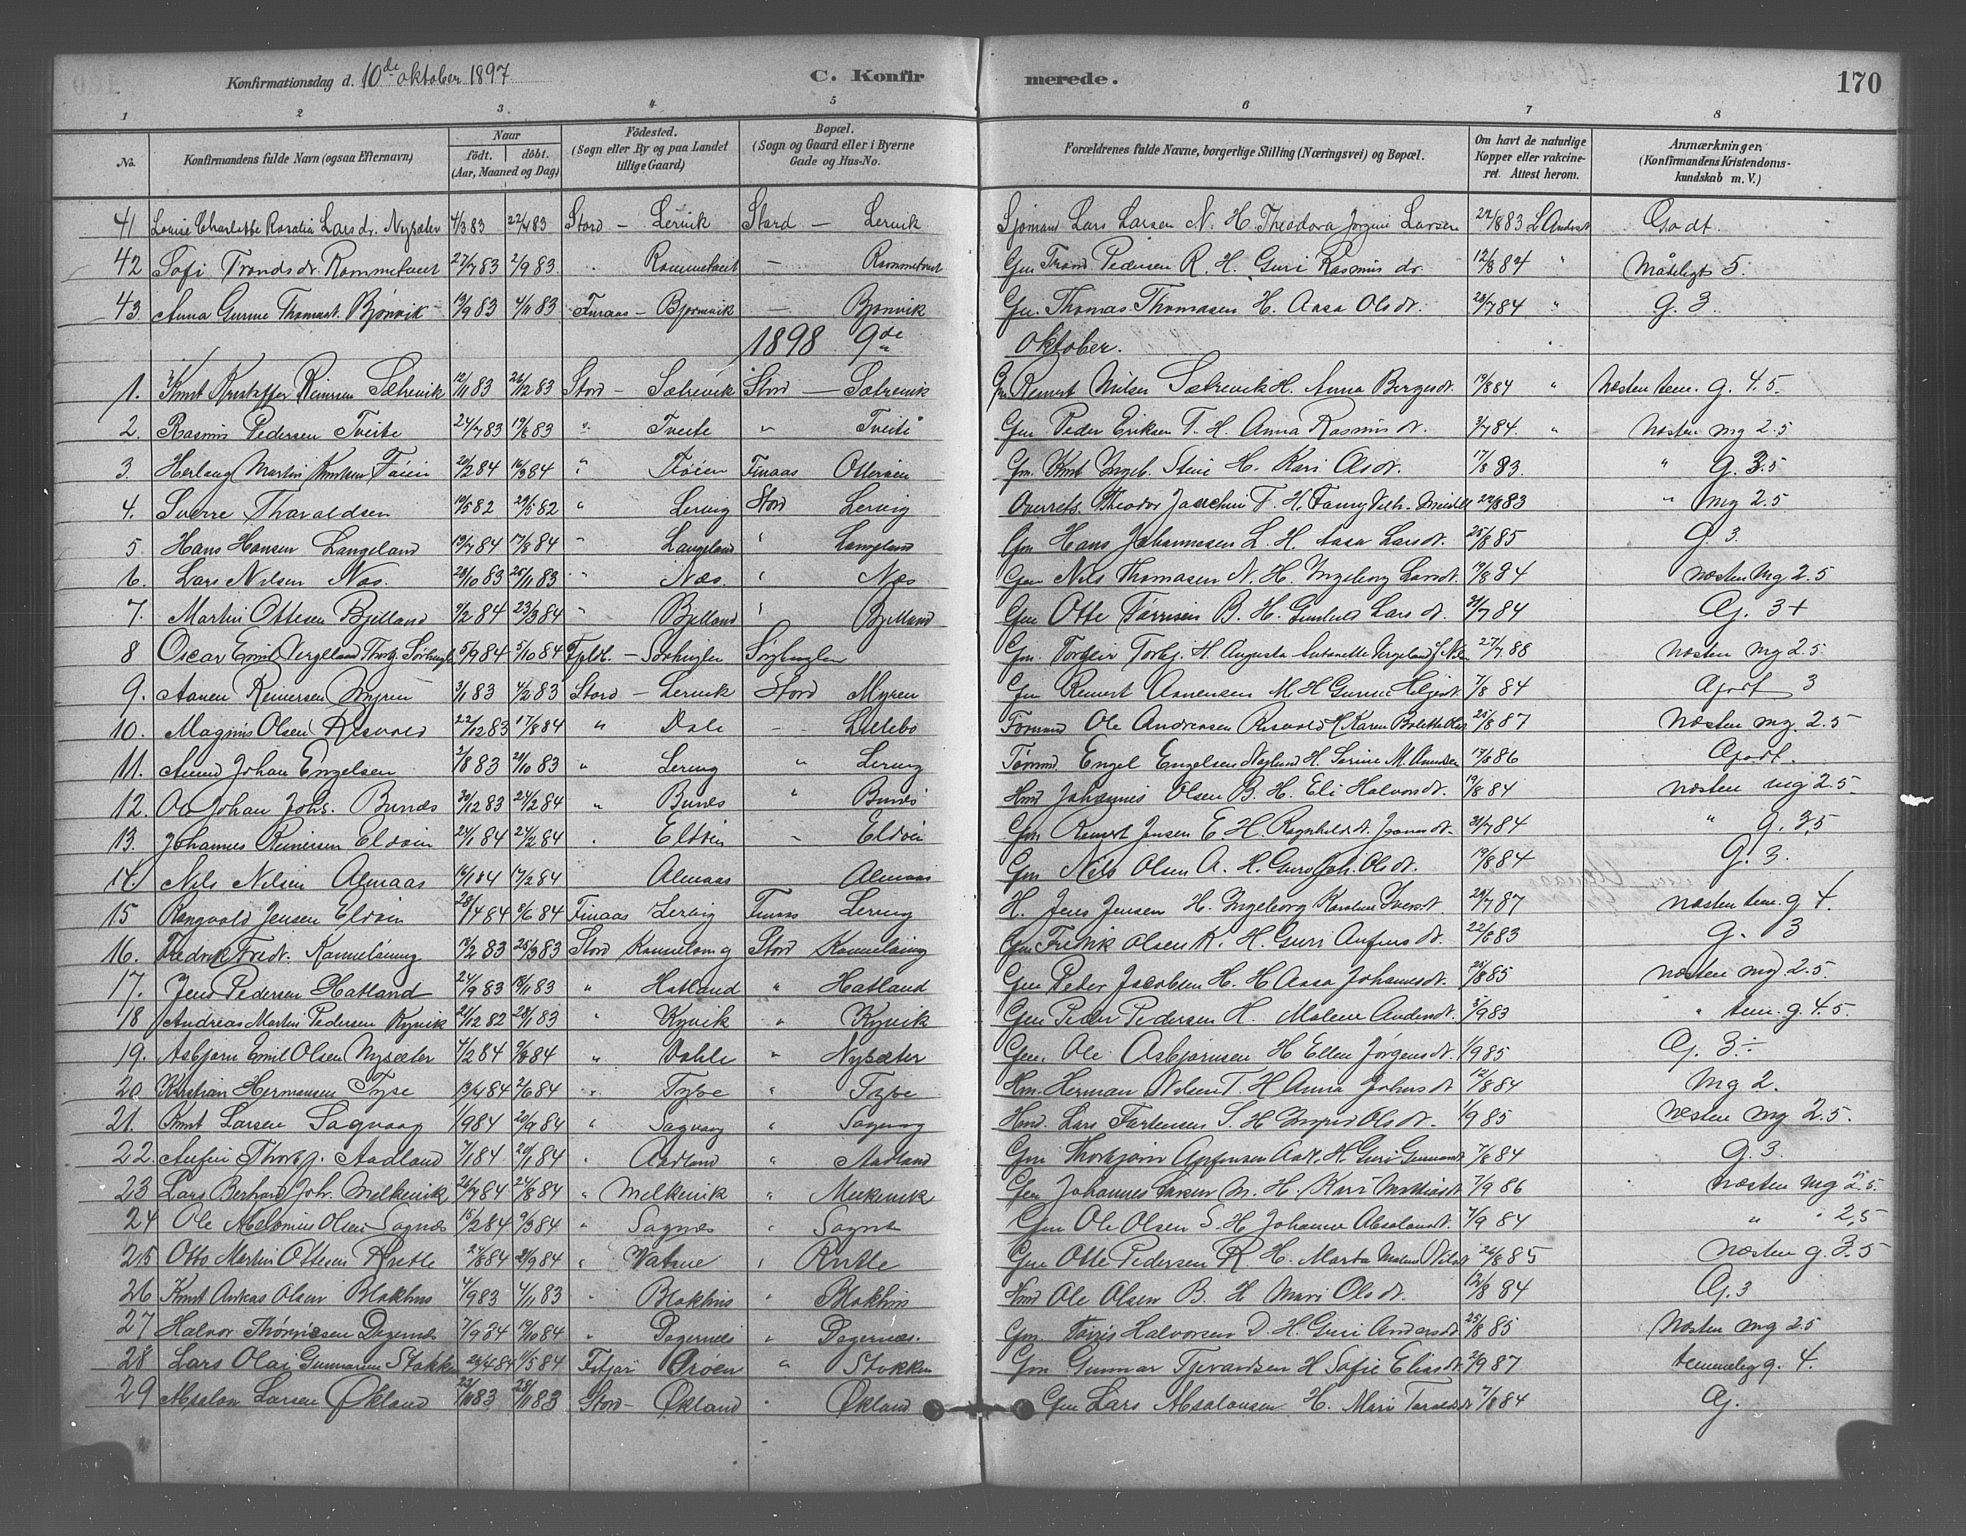 Konfirmationsdag d. 10de oktober 1897 C. Konfir merede. 170
1 2 3. 4 5 6 7 8
No. Konfirmandens fulde Navn (ogsaa Efternavn) Naar födt. döbt. (Aar, Maaned og Dag) Födested. (Sogn eller By og paa Landet tillige Gaard) Bopæl. (Sogn og Gaard eller i Byerne Gade og Hus-No. Forældrenes fulde Navne, borgerlige Stilling (Næringsvei) og Bopæl. Om havt de naturlige Kopper eller vakcineret. Attest herom. Anmærkninger. (Konfirmandens Kristendomskundskab m. V.)
41 Louise Charlotte Rosalia Lars dr. Nysæter 4/3 83 22/4 83 Stord – Lervik Stord – Lervik Sjömand Lars Larsen N. H. Theodora Jorgine Larsen 22/8 83 Godt.
42 Sofi Tronds dr. Rommetveit 27/7 83 2/9 83 " Rommetveit – Rommetveit Gm Trond Pedersen R. H. Guri Rasmus dr. 12/8 84 " Mådeligt 5.
43 Anna Gurine Thomasd. Bjönvik 19/9 83 4/11 83 Finaas – Bjornevik – Bjonvik Gm. Thomas Thomasen H. Aasa Olsdt. 28/7 84 " g. 3.
1898 9de oktober.
1. Knut Kristoffer Reinersen Sætrevik 12/11 83 26/12 83 Stord – Sætrevik Stord – Sætrevik Gm Reinert Nilsen Sætrevik H. Anna Bergesdt. 19/8 84 " Næsten tem. g. 4.5
2. Rasmus Pedersen Tveite 24/7 83 19/8 83 " Tveite " Tveite Gm Peder Eriksen T. H. Anna Rasmusdt. 3/7 84. " Næsten mg 2.5
3. Herlaug Martin Knutsen Töien 20/2 84 16/3 84 " Töien Finaas Otteröen Gm. Knut Ingeb. H. Kari Olsdt. 17/8 83. " g. 3.5
4. Sverre Tharaldsen 10/5 82 29/5 82 " Lervig Stord Lervig Overrets. Theodor Joachim T. H. Fanny 22/8 83 " mg 2.5
5 Hans Hansen Langeland 19/7 84 17/8 84 " Langeland " Langeland Gm. Hans Johannesen L. H. Aasa Larsdt. 25/8 85 g 3.
6. Lars Nilsen Næs. 28/10 83 25/11 83 " Næs. " Næs Gm Nils Thomasen N. H. Ingeborg Larsdt. 19/8 84 næsten mg 2.5
7. Martin Ottesen Bjelland 9/2 84 23/3 84 " Bjelland " Bjelland Gm Otte Törrisen B. H. Gunhild Lars dt. 31/7 84 g. 3+
8 Oscar Emil Vergeland Torbj. Sörhuglen 5/9 84 5/10 84 – Sörhuglen Sörhuglen Gm. Torgeir Torbj. H. Augusta Antonette 27/7 88 næsten mg 2.5.
9. Aanen Reinersen Myren 3/1 83 4/2 83 Stord – Lervik Stord Myren Gm Reinert Aanensen M. H Gurine Helgesdt. 7/8 84 Godt 3
10. Magnus Olsen Risvold 22/12 83 17/8 84 " Dale – Lillebo Tömmd Ole Andreasen Risvold H. Karen Bolette 25/8 87 næsten mg. 2.5
11. Amund Johan Engelsen 2/8 83 21/10 83 " Lervig " Lervig Tömmd. Engel Engelsen H. Serine M. Amundsen 17/8 86 Godt.
12. Ole Johan Johs. Bunæs 30/12 83 24/2 84 " Bunæs " Bunæs Hmd Johannis Olsen B. H. Eli Halvorsdt. 19/8 84 næsten mg 2.5.
13. Johannes Reinersen Eldöin 24/1 84 24/2 84 . Eldöin – Eldöin Gm. Reinert Jensen E H. Ragnhildt 31/7 84 " g. 3,5
14. Nils Nilsen Almaas 16/1 84 17/2 84 Almaas Almaas Gm Nils Olsen A. H. Guro Joh. Olsdt. 19/8 84 g. 3.
15 Rangvald Jensen Eldöin 28/4 84 8/6 84 Finaas Lervig Finaas Lervig H. Jens Jensen H. Ingeborg Karoline Iversdt. 29/7 87 næsten tem. g 4.
16. Fredrik Fredr. Kanneløning 19/2 83 26/3 83 Stord Kannelöning Stord Kannelöning Gm Fredrik Olsen K. H. Guri Anfinsdt. 22/8 83 g. 3
17. Jens Pedersen Hatland 24/9 83 18/11 83 " Hatland " Hatland Gm Peder Jacobsen H. H Aasa Johannesdt. 25/8 85 næsten mg 2.5.
18 Andreas Martin Pedersen Kyvik 21/12 82 28/1 83 " Kyvik " Kyvik Gm Peder Pedersen K. Malene 5/9 83 " tem. g. 4.5
19. Asbjørn Emil Olsen Nysæter 7/2 84 9/3 84 " Dahle " Nysæter Gm. Ole Asbjørnsen H Ellen Jørgensdt. 1/9 85 g. 3 ÷
20. Kristian Hermansen Tyse 13/4 84 2/6 84 " Tyse " Tyse Hm. Herman Nilsen T H Anna Johnsdt 12/8 84 mg 2.
21. Knut Larsen Sagvaag 1/9 84 20/9 84 " Sagvaag " Sagvaag Hmd. Lars S. H Ingrid Olsdt. 1/9 85 næsten mg 2.5.
22. Anfin Thorbj. Aadland 7/1 84 20/1 84 " Aadland " Aadland Gm Thorbjörn Anfinsen Aad. H. Guri 7/8 84 g. 3.
23 Lars Berhard Joh. Melkevik 26/7 84 24/8 84 " Melkevik " Melkevik Gm Johannes Larsen M. H. Kari 7/9 86 Næsten mg 2.5.
24 Ole Absalonius Olsen Sagnæs 15/2 84 9/3 84 " Sagnæs " Sagnæs Gm Ole Olsen S. H Johanne Absalonsdt. 7/9 84 " " 2,5
25 Otto Martin Ottesen Rutle 27/8 84 21/9 84 " Vatne " Rutle Gm Otte Pedersen R. H. Marta 26/8 85 næsten g. 3.5
26 Knut Andreas Olsen Blokhus 4/9 83 4/11 83 " Blokhus " Blokhus Hmd Ole Olsen B. H Mari Olsdt. 12/8 84 g. 3
27 Halvor Thørrisen Dagernæs 7/9 84 19/10 84 " Dagernæs " Dagernæs. Gm. Törris Halvorsen D. H. Guri Andersdt 25/8 85 Næsten mg 2.5
28 Lars Olai Gunnarsen Stokken 22/4 84 11/5 84 Fitjar Øröen " Stokken Gm Gunnar Tjerandsen H Sofie Eliasdt. 2/9 87 temmelig g. 4.
29 Absalon Larsen Økland 22/10 83 28/11 83 Stord – Økland " Økland Gm Lars Absalonsen H. Mari 7/8 84 g.